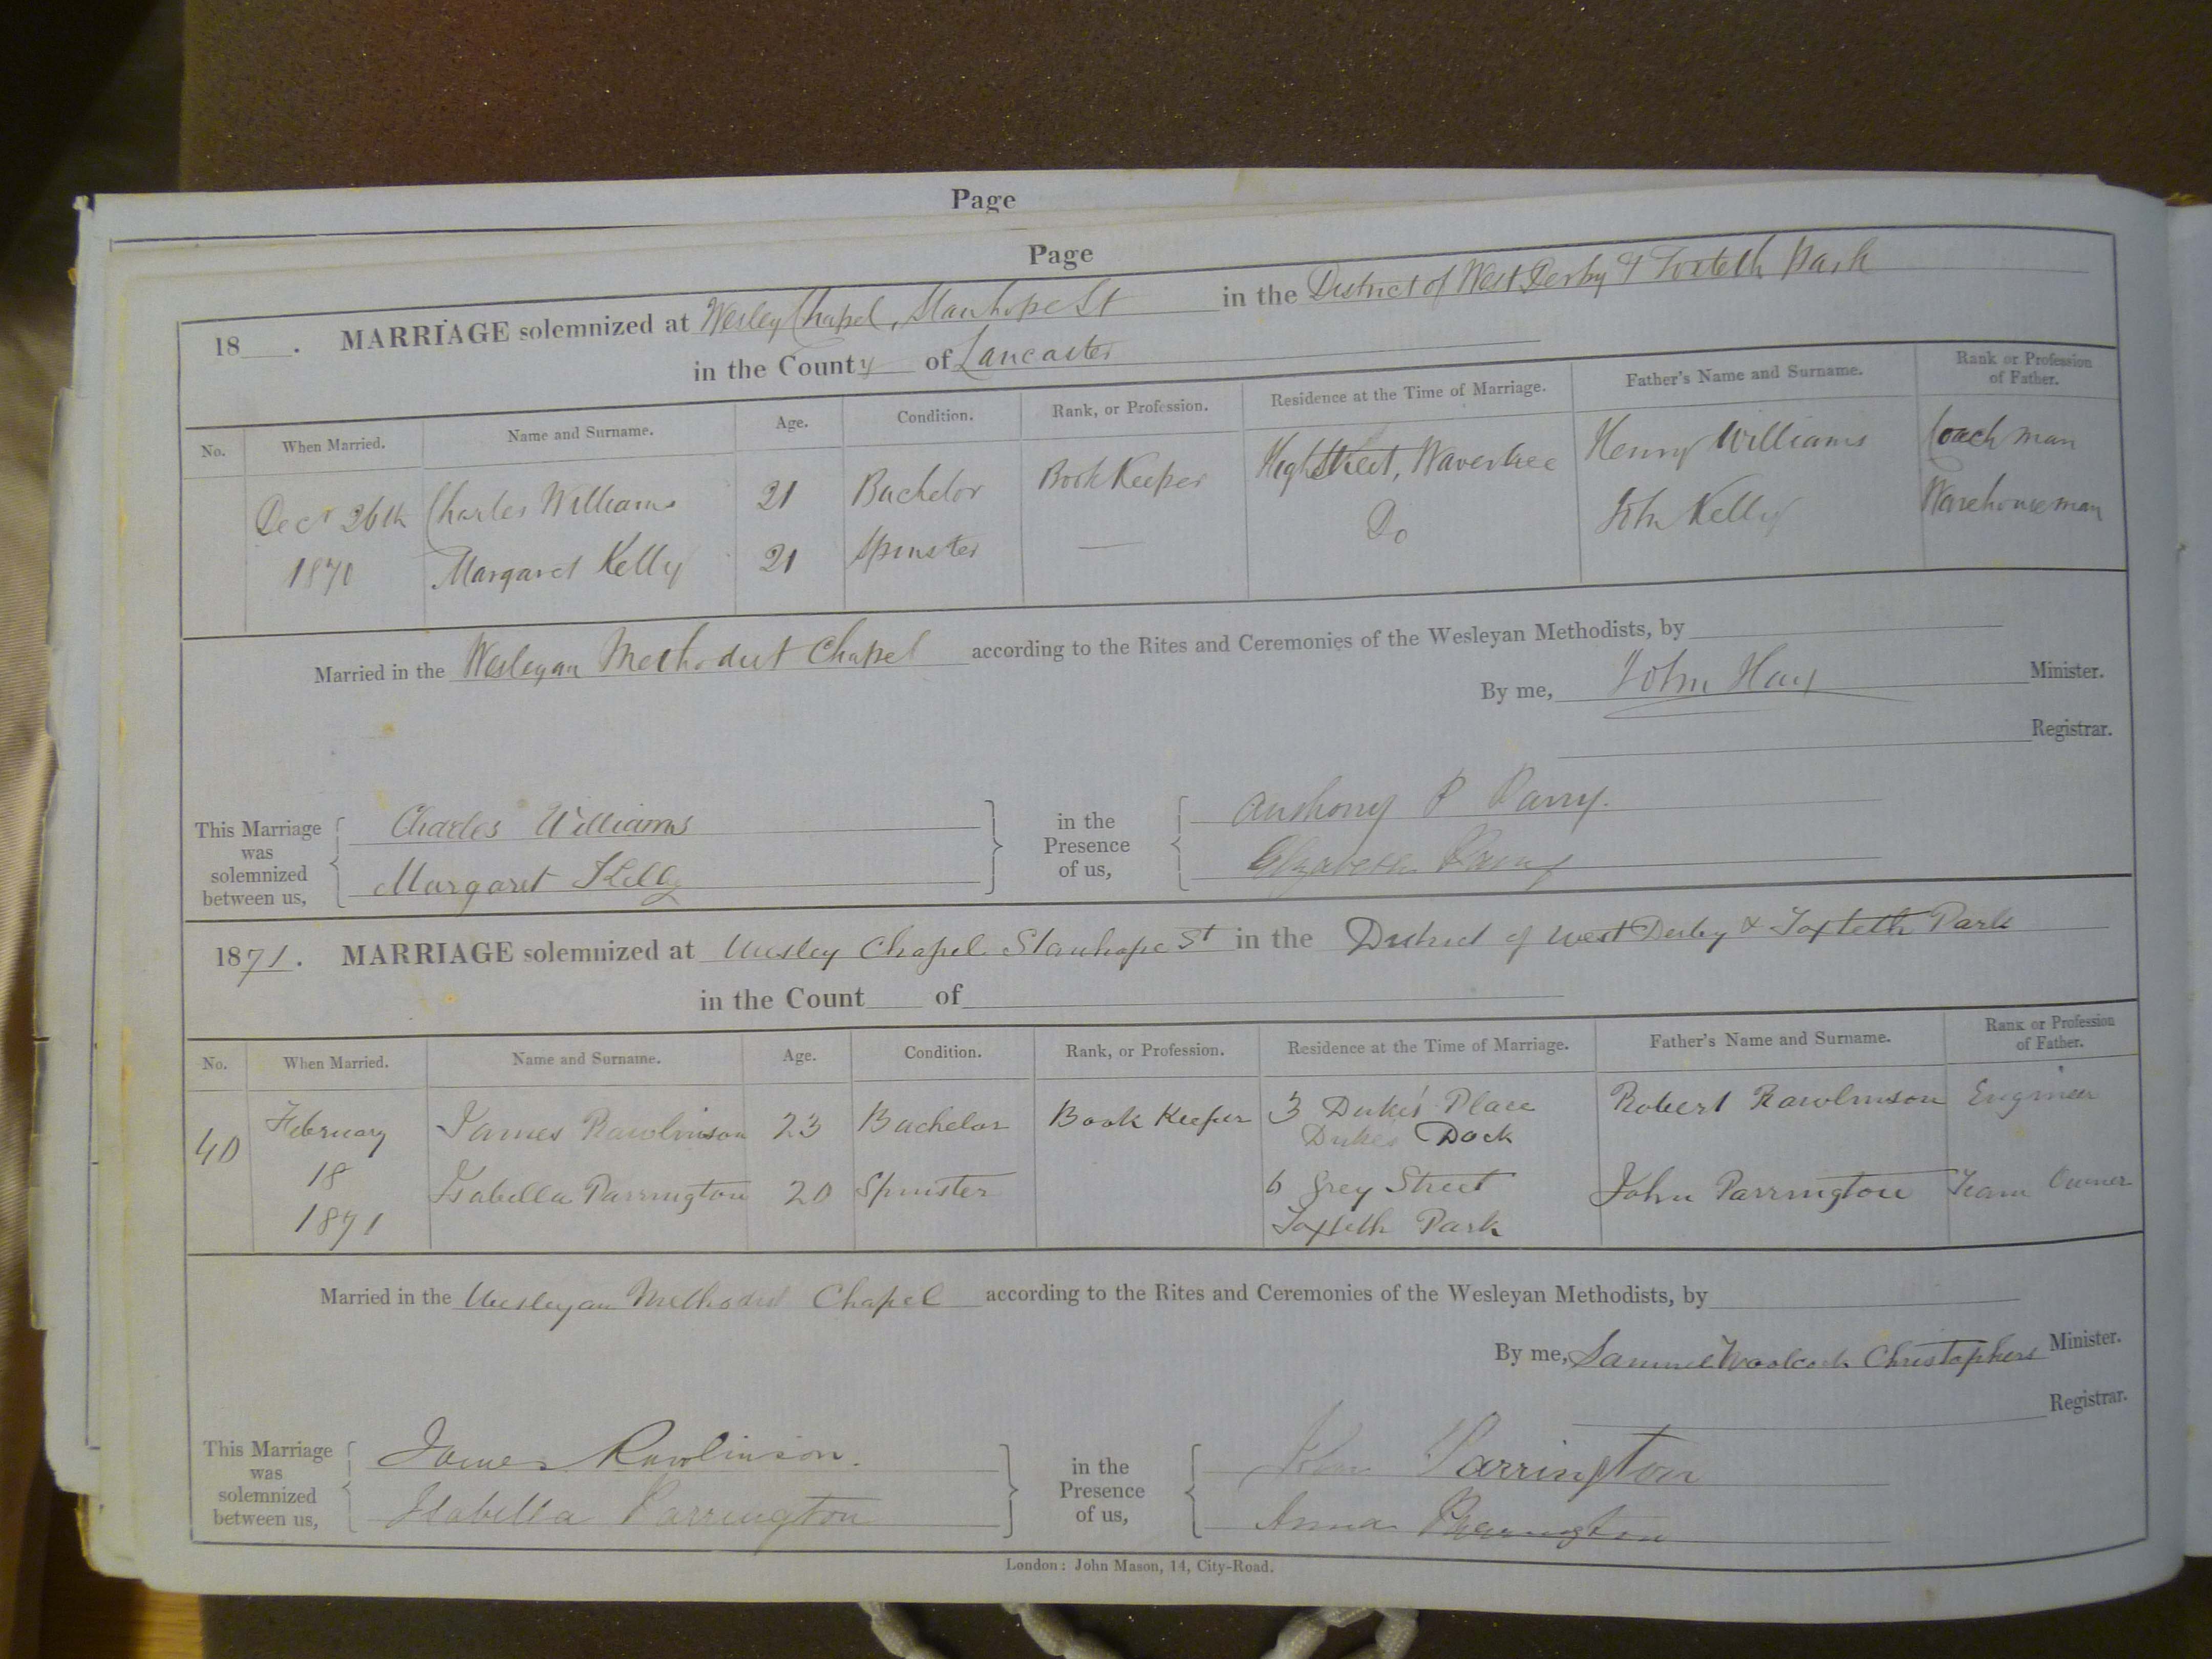 Page
Page
18 . MARRIAGE solemnized at Wesley Chapel, Stanhope St in the District of West Derby & Toxteth Park
in the County of Lancaster
No. When Married. Name and Surname. Age. Condition. Rank, or Profession. Residence at the Time of Marriage. Father's Name and Surname. Rank or Profession of Father.
Decr 26th Charles Williams 21 Bachelor Book Keeper High Street, Wavertree Henry Williams Coachman
1870 Margaret Kelly 21 Spinster — Do John Kelly Warehouseman
Married in the Wesleyan Methodist Chapel according to the Rites and Ceremonies of the Wesleyan Methodists, by
By me, John Hay Minister.
Registrar.
This Marriage was solemnized between us,
Charles Williams
Margaret Kelly
in the Presence of us,
Anthony P Parry.
Elizabeth Parry
1871. MARRIAGE solemnized at Wesley Chapel Stanhope St in the District of West Derby & Toxteth Park
in the Count of
No. When Married. Name and Surname. Age. Condition. Rank, or Profession. Residence at the Time of Marriage. Father's Name and Surname. Rank or Profession of Father.
40 February 18 1871
James Rawlinson 23 Bachelor Book Keeper 3 Duke's Place Duke's Dock Robert Rawlinson Engineer
Isabella Parrington 20 Spinster 6 Grey Street Toxteth Park John Parrington Team Owner
Married in the Wesleyan Methodist Chapel according to the Rites and Ceremonies of the Wesleyan Methodists, by
By me, Samuel Woolcock Christophers Minister.
Registrar.
This Marriage was solemnized between us,
James Rawlinson.
Isabella Parrington
in the Presence of us,
John Parrington
Anna Parrington
London: John Mason, 14, City-Road.